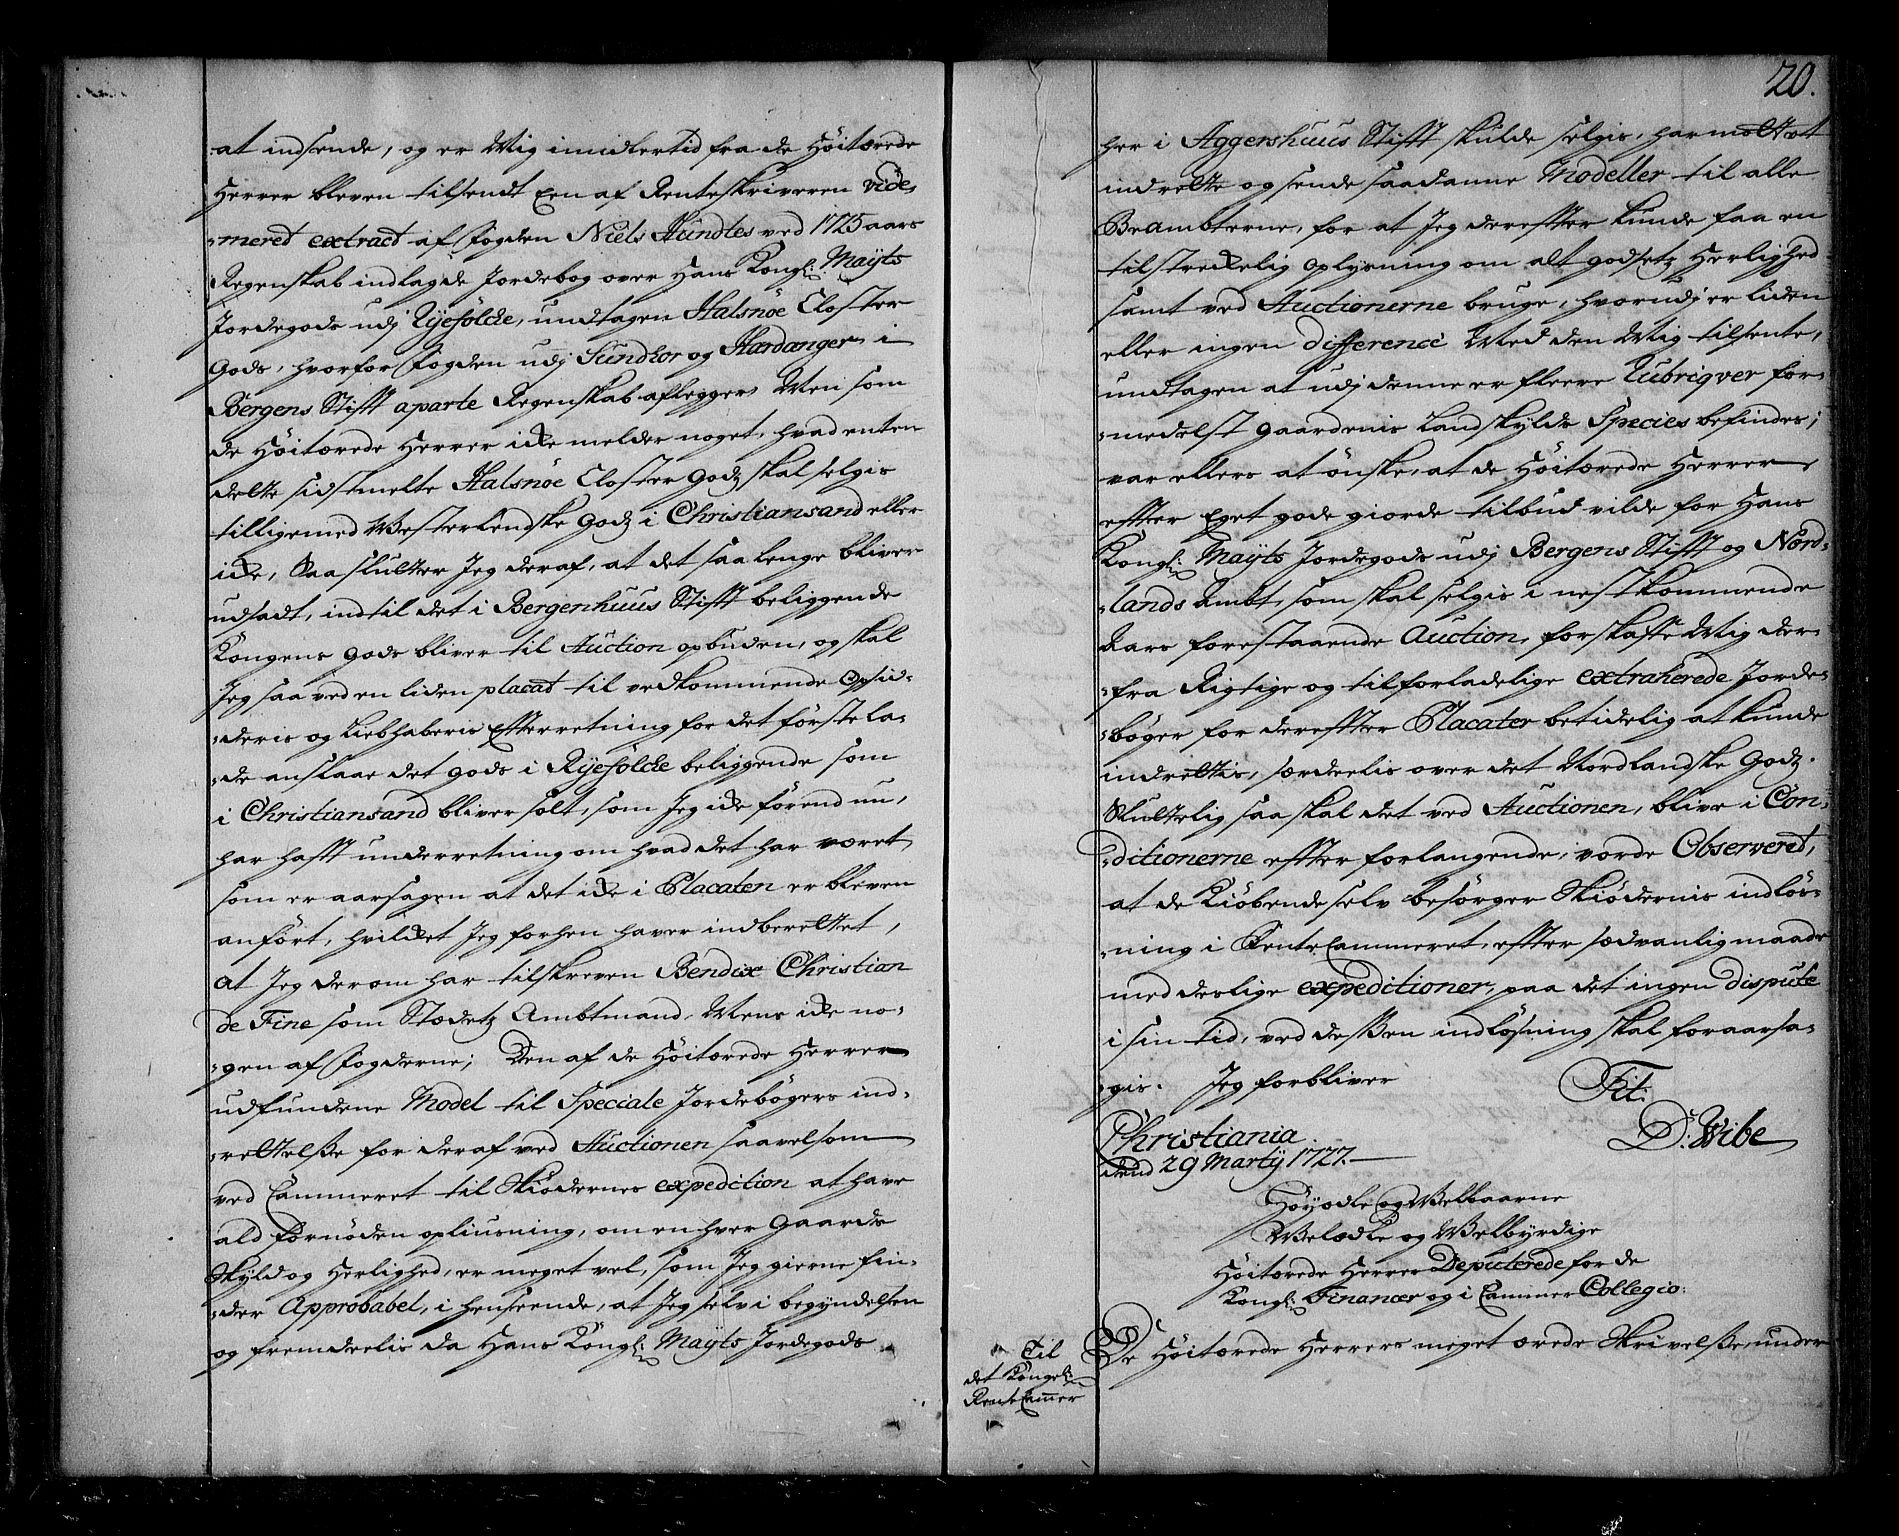 at indsende, og er Mig imidlertid fra de Høitærede
Herrer bleven tilsendt Een af Renteskriveren vide-
-meret extract af Fogden Niels Hundtes ved 1725 aars
Regenskab indlagde Jordebog over Hans Kongl: Mayts
Jordegods udj Ryefölcke, undtagen Halsnöe Closter
Gods, hvorfor Fogden udj Sundhor og Hardanger i
Bergens Stifft aparte Regenskab aflegger, Men som
de Høitærede Herrer icke melder noget, hvad enten
dette sidstmelte Halsnöe Closter Godz skal selgis
tilligemed Vesterlendske Godz i Christiansand eller
icke, Saa slutter Jeg deraf, at det saa lenge bliver
udsadt, indtil det i Bergenhuus Stifft beliggende
Kongens Gods bliver til Auction opbuden, og skal
Jeg saa ved en liden placat til vedkommende Opsid-
-deris og Liebhaberis Effterretning for det förstela-
-de anslaae det Gods i Ryefölcke beliggende som
i Christiansand bliver solt, som Jeg icke förend nu,
har hafft underretning om hvad det har været,
som er aarsagen at det icke i Placaten er bleven
anfört, hvilcket Jeg forhen haver indberettet,
at Jeg derom har tilskreven Bendix Christian
de Fine som Stædetz Ambtmand, Mens icke no-
-gen af Fogderne; Den af de Høitærede Herrer
udfundene Model til Speciale Jordebögers ind-
-rettelsse for deraf ved Auctionen saavelsom
ved Cammeret til Skiödernes expedition at have
ald fornöden opliusning, om en hver Gaards
Skyld og Herlighed, er meget vel, som Jeg gierne fin-
-der Approbabel, i henseende, at Jeg selv i begyndelsen
og fremdeelis da Hans Kongl: Mayts Jordegods
20.
her i Aggershuus Stifft skulde selgis, har
indrette og sende saadanne Modeller til alle
Beambterne, for at Jeg dereffter kunde faa en
tilstreckelig oplysning om alt godsetz Herlighed
samt ved Auctionerne bruge, hvorudj er liden
eller ingen difference Med den Mig tilsente,
undtagen at udj denne er fleere Rubriqver for-
-medelst Gaardenis Landskylds Species befindes;
var ellers at önske, at de Høitærede Herrer
effter Eget gode giorde tilbud vilde for Hans
Kongl: Mayts Jordegods udj Bergens Stifft og Nord-
-lands Ambt, som skal selgis i nestkommende
Aars forestaaende Auction, forskaffe Mig der-
-fra Rigtige og tilforladelige extraherede Jorde-
-böger for dereffter Placater betidelig at kunde
indrettis, særdeelis over det Nordlandske Godz.
Sluttelig saa skal det ved Auctionen, blive i Con-
-ditionerne effter forlangende, vorde Observeret,
at de Kiöbende selv besörger Skiödernis indlös-
-ning i RenteCammeret, effter sædvanlig maade
med deslige expeditioner, paa det ingen dispute
i sin tid, ved dessen indlösning skal foraarsa-
-gis. Jeg forbliver
Tit:
Christiania
dend 29 Martij 1727.
D: Wibe
Höyædle og Velbaarne
Velædle og Velbyrdige
Høitærede Herrer Deputerede for de
Kongl: Financer og i Cammer Collegio:
Til
det Kongel:
RenteCammer
De Høitærede Herrers meget ærede Skrivelsse, under